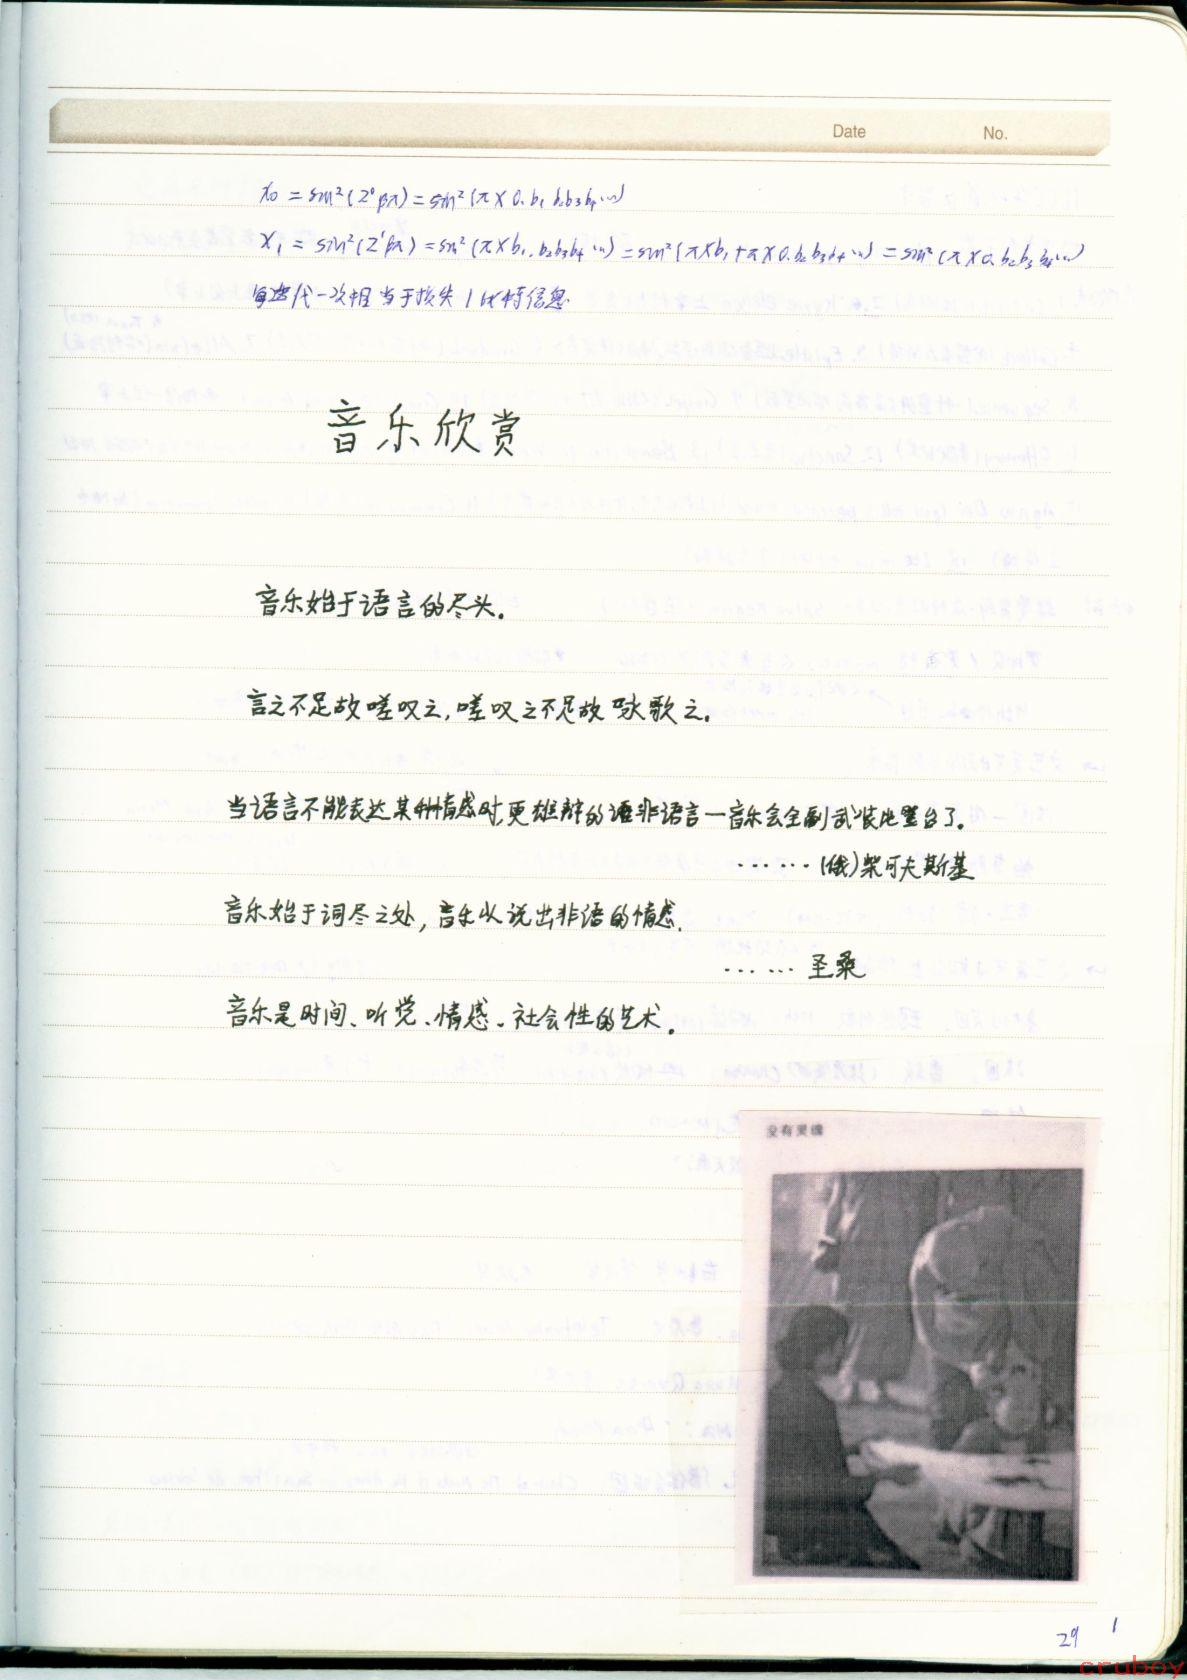 Date No.
x₀ = sin²(2⁰βπ) = sin²(π×0.b₁b₂b₃b₄…)
x₁ = sin²(2¹βπ) = sin²(π×b₁.b₂b₃b₄…) = sin²(π×b₁+π×0.b₂b₃b₄…) = sin²(π×0.b₂b₃b₄…)
每迭代一次相当于损失1比特信息
音乐欣赏
音乐始于语言的尽头。
言之不足故嗟叹之,嗟叹之不足故咏歌之。
当语言不能表达某种情感时,更雄辩的语非语言—音乐会全副武装地登台了。
……(俄)柴可夫斯基
音乐始于词尽之处,音乐以说出非语的情感.
…… 圣桑
音乐是时间、听觉、情感、社会性的艺术。
没有灵魂
29 1
cruboy